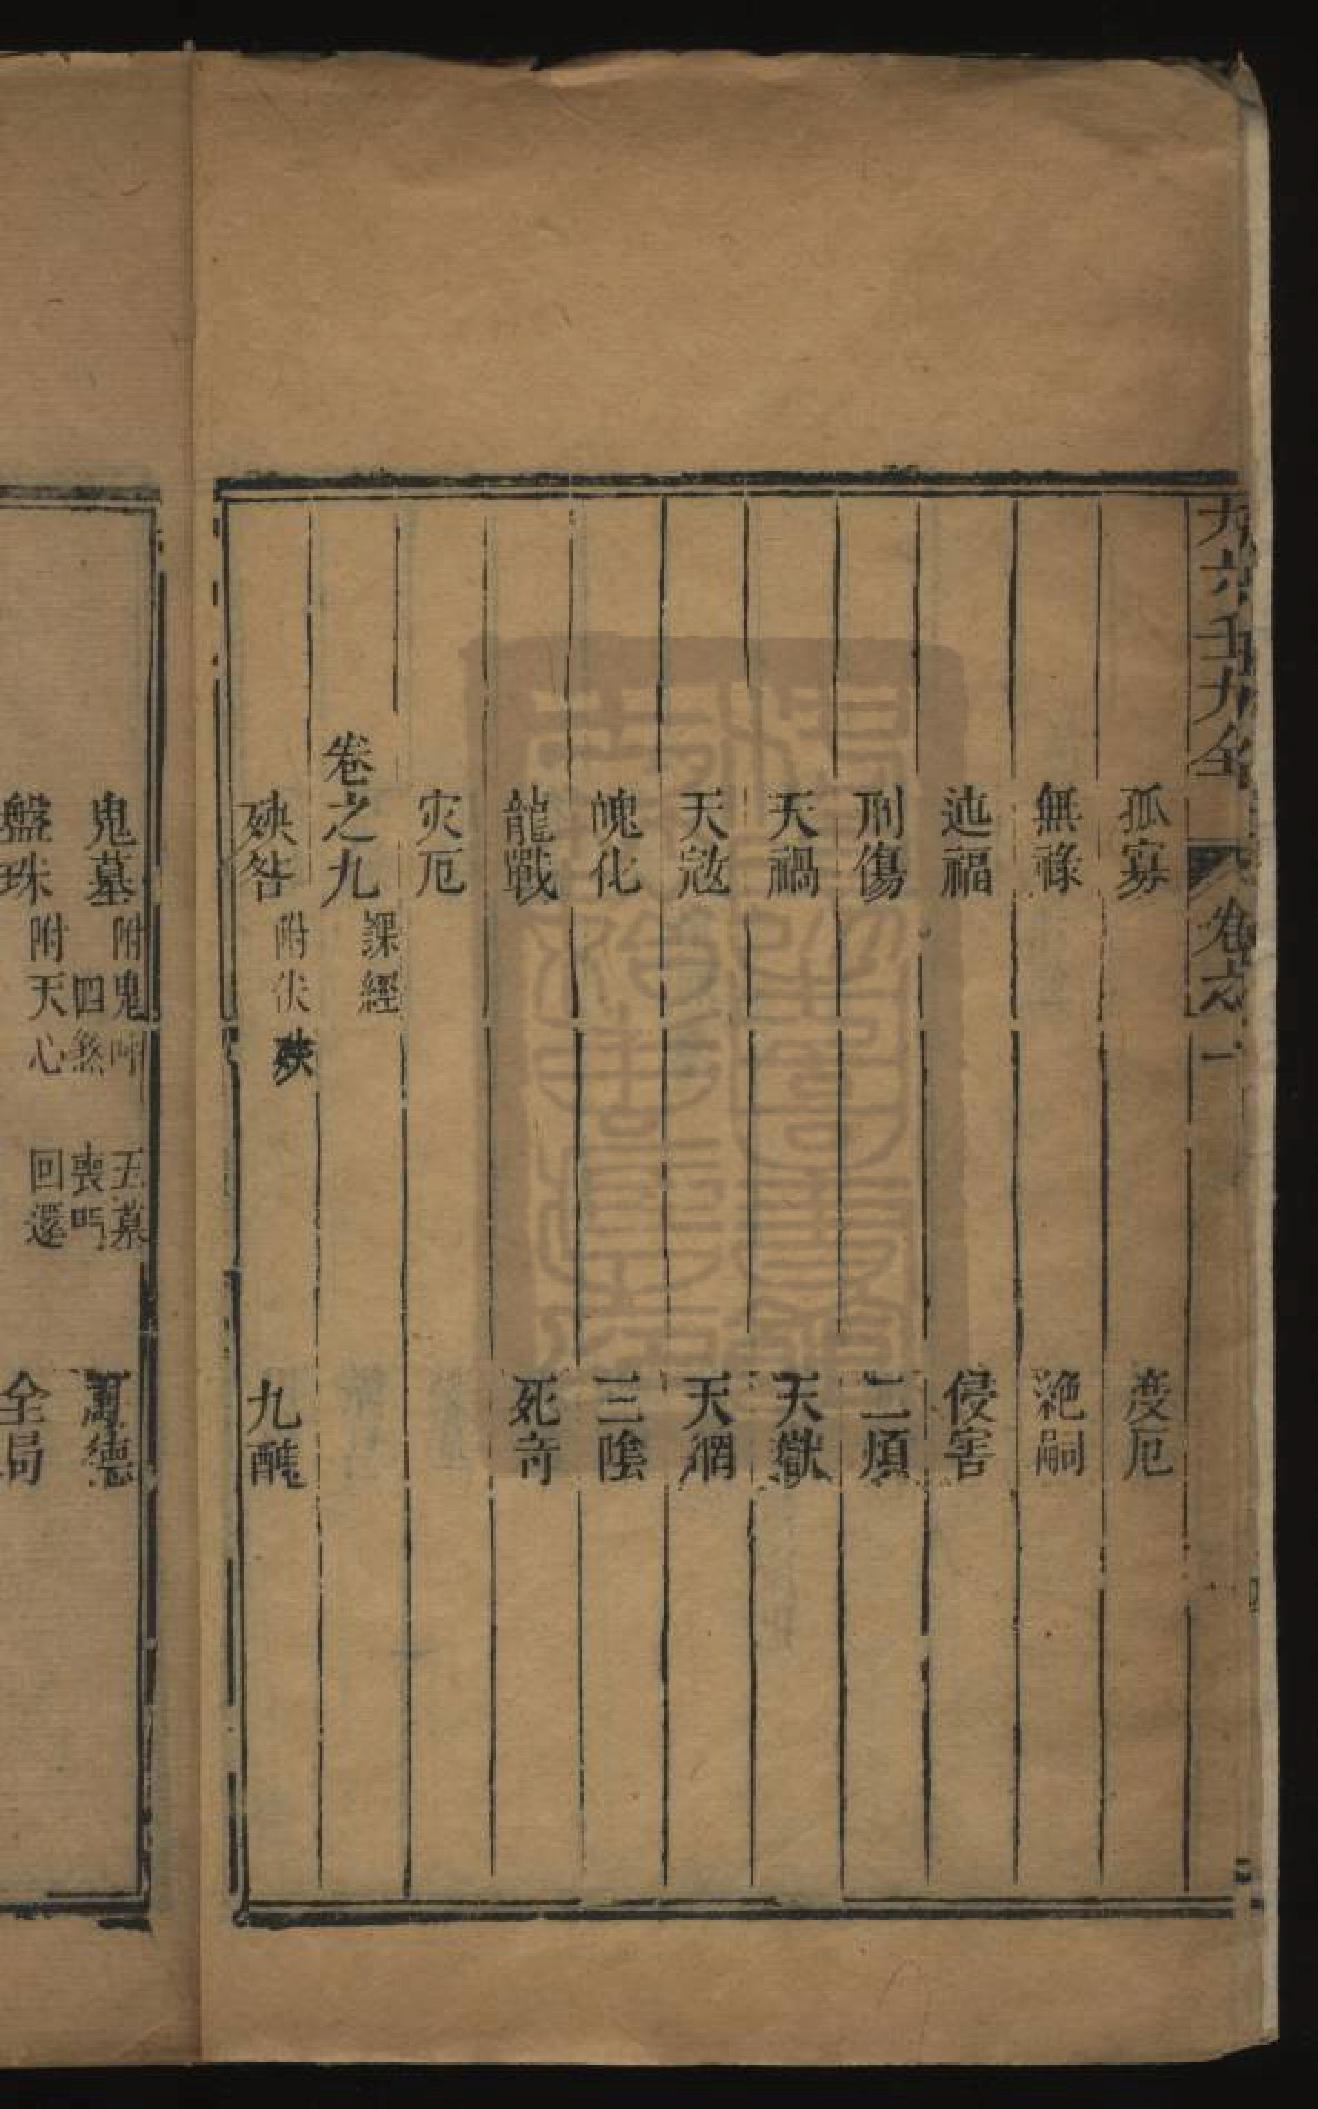 大六壬大全 卷之一
孤寡 度厄
無祿 絶嗣
迍福 侵害
刑傷 二煩
天禍 天獄
天寇 天網
魄化 三陰
龍戰 死奇
灾厄
卷之九 課經
殃咎 附伏殃 九醜
鬼墓 附鬼呼 五墓 四煞 喪門 萬德
盤珠 附天心 回還 全局